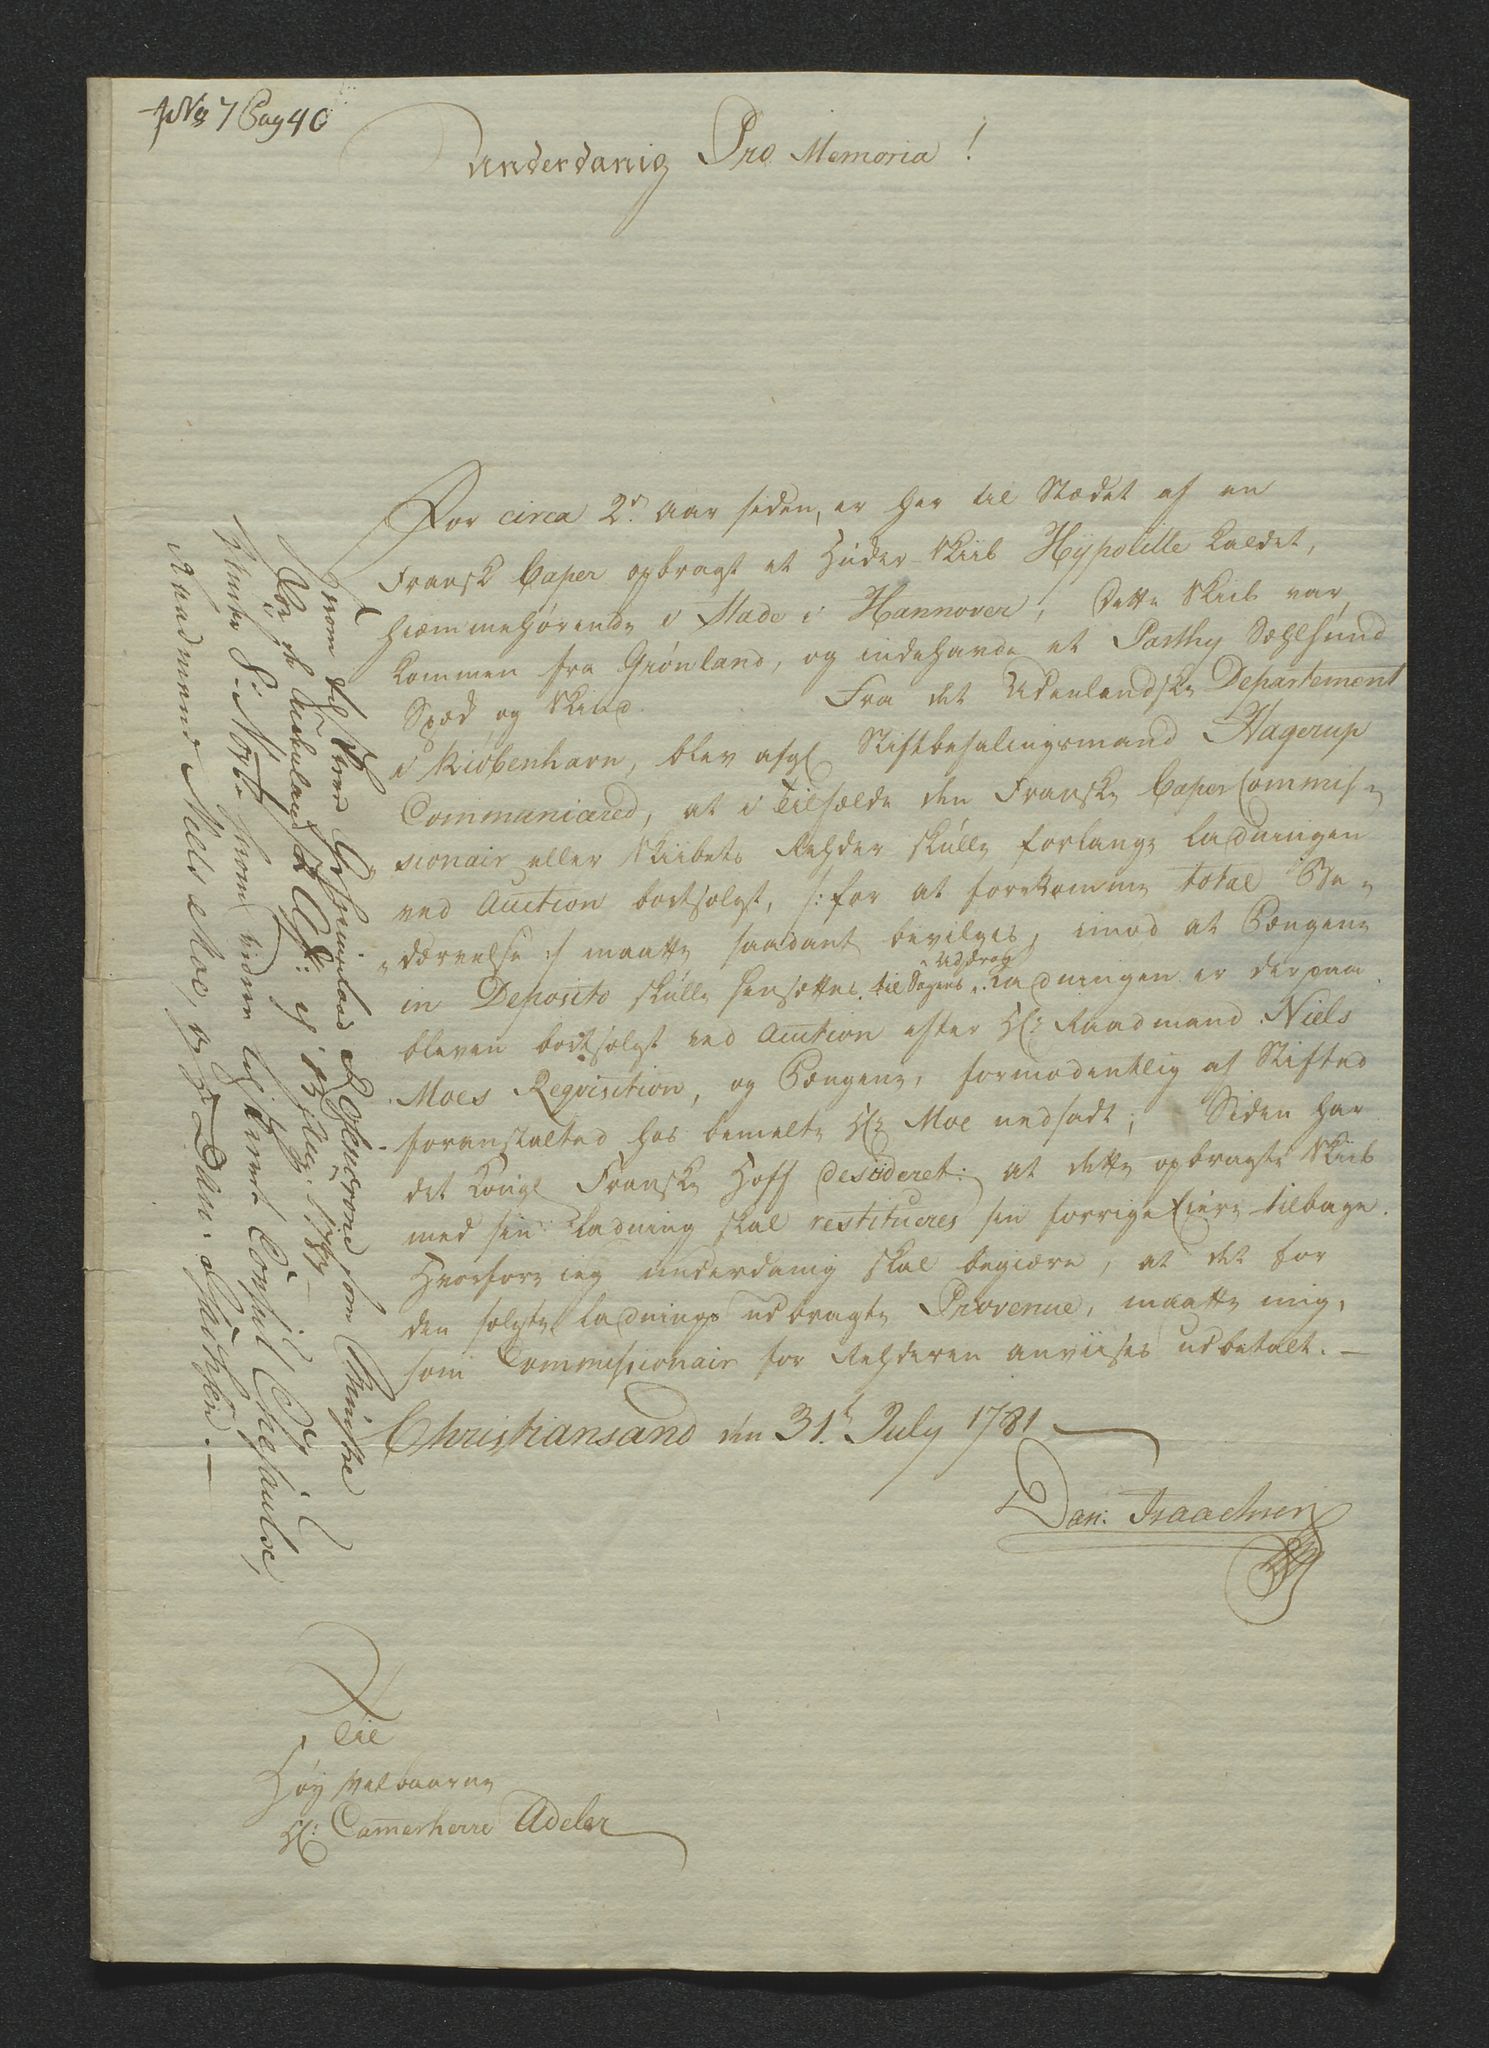 No 7 Pag 40
Underdanig Pro Memoria !
For circa 2de Aar siden, er her til Stædet af en
Fransk Caper opbragt et Huder-Skiib Hypolitte kaldet,
hiemmehørende i Stade i Hannover; Dette Skiib var
kommen fra Grønland, og indehavde et Parthy Sælhund
Spæd og Skind. Fra det Udenlandske Departement
i Kiøbenhavn, blev afgl Stiftbefalingsmand Hagerup
Communicered, at i Tilfælde den Franske Caper Commis-
sionair eller Skiibets Rehder skulle forlange Ladningen
ved Auction bortsolgt, /: for at forekomme total Be-
dærvelse :/ maatte saadant bevilges, imod at Pengene
in Deposito skulle hensættes til Sagens Uddrag. Ladningen er derpaa
bleven bortsolgt ved Auction efter Hr: Raadmand Niels
Moes Reqvisition, og Pengene, formodentlig af Stifted
foranstalted hos bemelte Hr: Moe nedsadt; Siden har
det Kongl Franske Hoff Desideret: at dette opbragte Skiib
med sin Ladning skal restitueres sin forrige Eiere tilbage.
Hvorfore ieg underdanig skal begiære, at det for
den solgte Ladnings udbragte Provenue, maatte mig,
som Commissionair for Rehderen anviises udbetalt. —
Christiansand den 31te July 1781
Dan: Isaachsen
Til
Høy Velbaarne
Hr: Camerherre Adeler
som
1781
Consul
Raadmand Niels Moe, og Hr Dan: Isaachsen. —